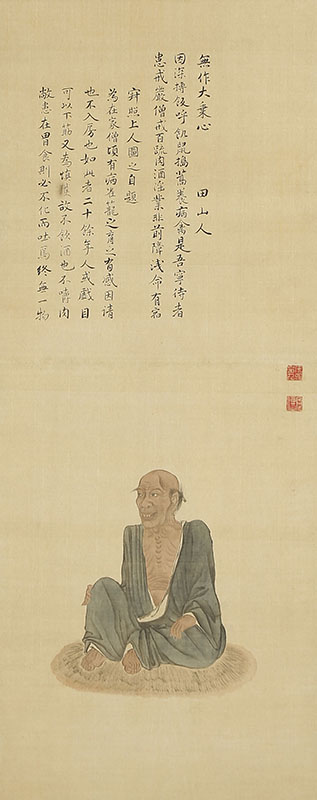 患在胃食則必不化而吐焉終無一物
可以下筋又為故不飲酒也不嚼肉
也不入房也如此者二十餘年人或戲目
為在家僧頃有病雀籠之育之有感因請
寂照上人圖之自題
患戒嚴僧戒百疏肉酒淫業非前障浅命有宿
因深摶飯呼飢鼠搗藁養病禽是吾寧侍者
無作大乗心　田山人